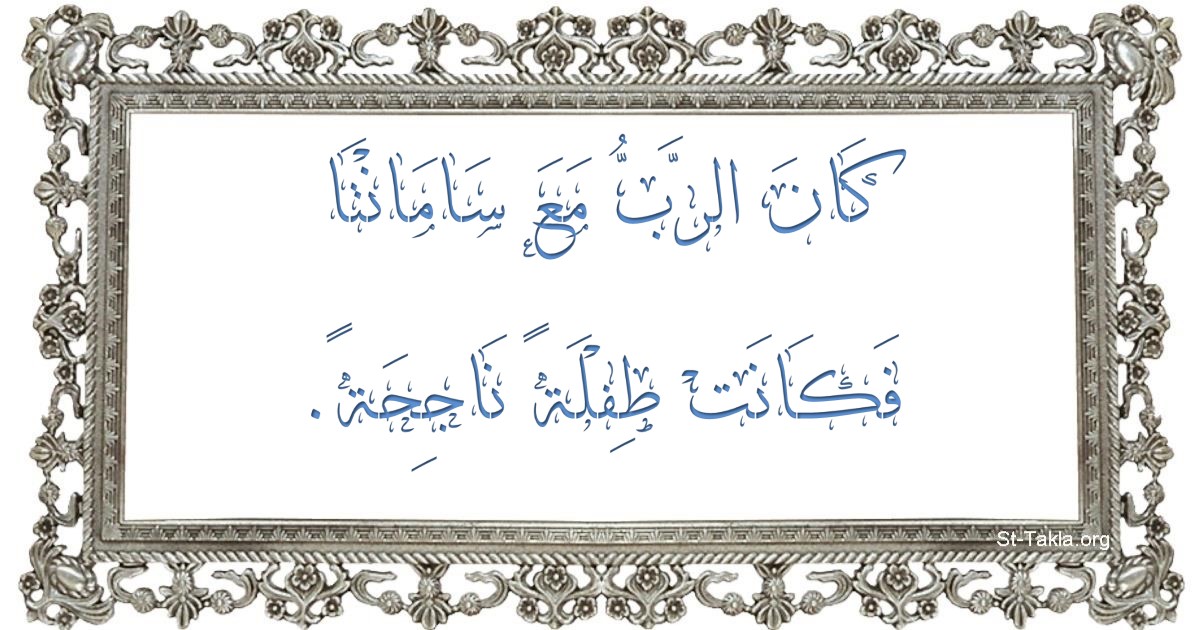 كَانَ الرَّبُّ مَعَ سَامَانْثَا
فَكَانَتْ طِفْلَةً نَاجِحَةً.
St-Takla.org